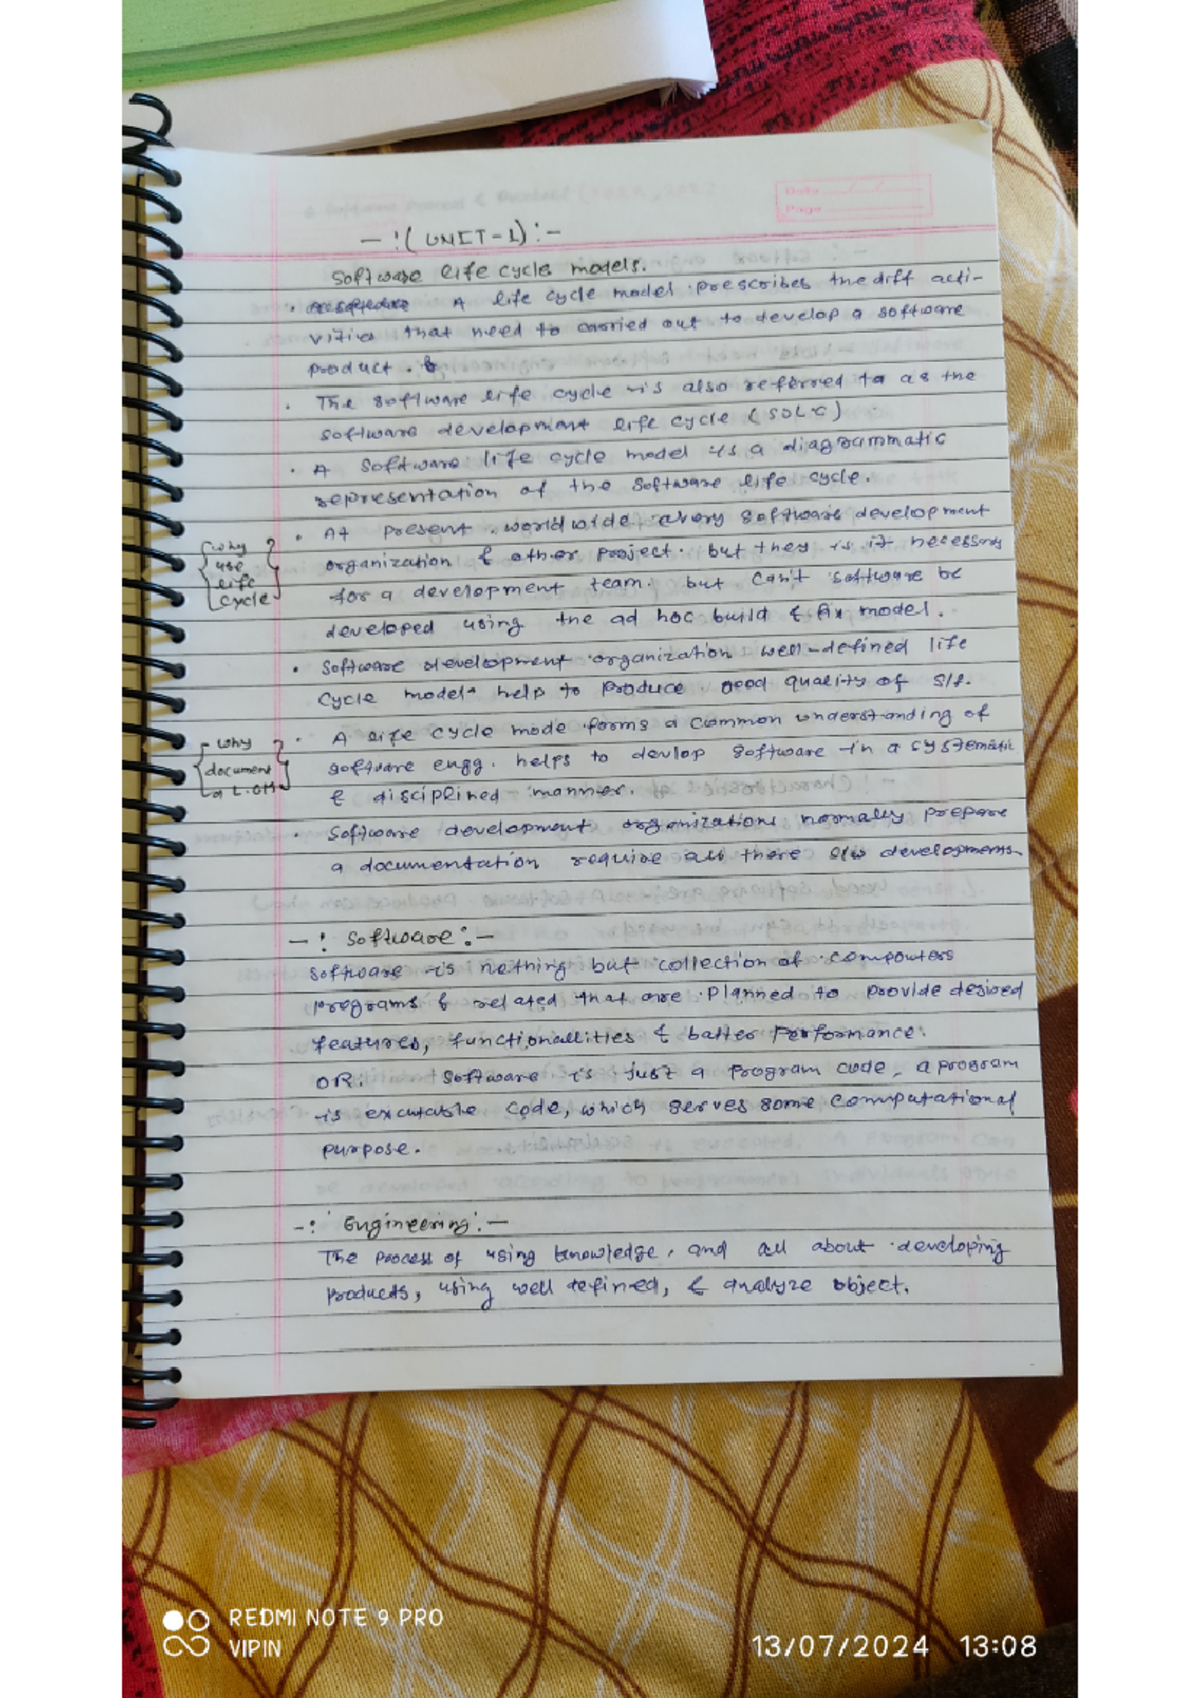 Date
Page
- !( UNIT-1) :-
Software life cycle models.
. A life cycle model prescribes the diff acti-
vities that need to carried out to develop a software
product.
. The software life cycle is also referred to as the
software development life cycle (SDLC)
. A software life cycle model is a diagrammatic
representation of the software life cycle.
. At present worldwide every software development
why
use
life
cycle
organization & other project. but they is it necessary
for a development team. but can't software be
developed using the ad hoc build & fix model.
. Software development organization well-defined life
cycle model help to produce good quality of S/f.
. A life cycle mode forms a common understanding of
why
document
a L.
software engg. helps to devlop software in a systematic
& disciplined manner.
. Software development organizations normally prepare
a documentation require all there s/w developments
- ! Software :-
Software is nething but collection of computers
programs & related that are planned to provide desired
features, functionallities & batter performance.
OR: Software is just a program code, a program
is excutable code, which serves some computational
purpose.
- ! Engineering :-
The process of using knowledge, and all about developing
products, using well defined, & analyze object.
REDMI NOTE 9 PRO
VIPIN
13/07/2024 13:08